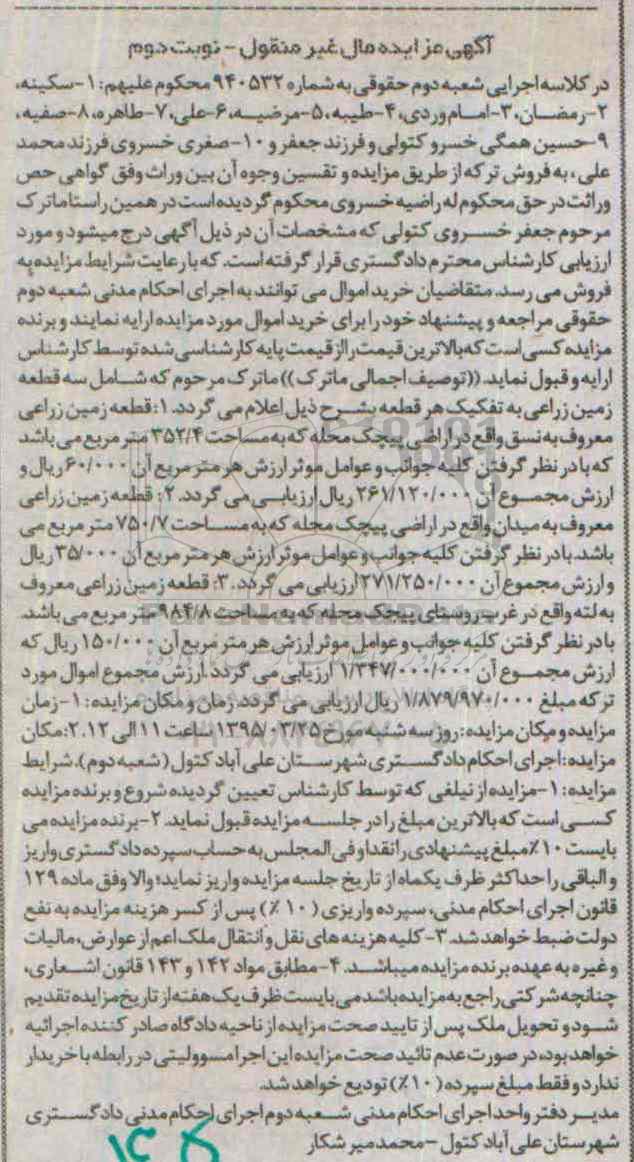 آگهی مزایده مال غیر منقول - نوبت دوم
در کلاسه اجرایی شعبه دوم حقوقی به شماره ۹۴۰۵۳۲ محکوم علیهم: ۱-سکینه،
۲-رمضان، ۳-امام وردی، ۴-طیبه، ۵-مرضیه، ۶-علی، ۷-طاهره، ۸-صفیه،
۹-حسین همگی خسرو کتولی و فرزند جعفر و ۱۰-صغری خسروی فرزند محمد
علی، به فروش ترکه از طریق مزایده و تقسین وجوه آن بین وراث وفق گواهی حص
وراثت در حق محکوم له راضیه خسروی محکوم گردیده است در همین راستا ماترک
مرحوم جعفر خسروی کتولی که مشخصات آن در ذیل آگهی درج میشود و مورد
ارزیابی کارشناس محترم دادگستری قرار گرفته است. که با رعایت شرایط مزایده به
فروش می رسد. متقاضیان خرید اموال می توانند به اجرای احکام مدنی شعبه دوم
حقوقی مراجعه و پیشنهاد خود را برای خرید اموال مورد مزایده ارایه نمایند و برنده
مزایده کسی است که بالاترین قیمت را از قیمت پایه کارشناسی شده توسط کارشناس
ارایه و قبول نماید. ((توصیف اجمالی ماترک)) ماترک مرحوم که شامل سه قطعه
زمین زراعی به تفکیک هر قطعه بشرح ذیل اعلام می گردد. ۱: قطعه زمین زراعی
معروف به نسق واقع در اراضی پیچک محله که به مساحت ۳۵۲/۴ متر مربع می باشد
که با در نظر گرفتن کلیه جوانب و عوامل موثر ارزش هر متر مربع آن ۶۰/۰۰۰ ریال و
ارزش مجموع آن ۲۶۱/۱۲۰/۰۰۰ ریال ارزیابی می گردد. ۲: قطعه زمین زراعی
معروف به میدان واقع در اراضی پیچک محله که به مساحت ۷۵۰/۷ متر مربع می
باشد. با در نظر گرفتن کلیه جوانب و عوامل موثر ارزش هر متر مربع آن ۳۵/۰۰۰ ریال
و ارزش مجموع آن ۲۷۱/۲۵۰/۰۰۰ ارزیابی می گردد. ۳: قطعه زمین زراعی معروف
به لته واقع در غرب روستای پیچک محله که به مساحت ۹۸۴/۸ متر مربع می باشد.
با در نظر گرفتن کلیه جوانب و عوامل موثر ارزش هر متر مربع آن ۱۵۰/۰۰۰ ریال که
ارزش مجموع آن ۱/۳۴۷/۰۰۰/۰۰۰ ارزیابی می گردد. ارزش مجموع اموال مورد
ترکه مبلغ ۱/۸۷۹/۹۷۰/۰۰۰ ریال ارزیابی می گردد. زمان و مکان مزایده: ۱-زمان
مزایده و مکان مزایده: روز سه شنبه مورخ ۱۳۹۵/۰۳/۲۵ ساعت ۱۱ الی ۱۲. ۲: مکان
مزایده: اجرای احکام دادگستری شهرستان علی آباد کتول (شعبه دوم). شرایط
مزایده: ۱-مزایده از نیلغی که توسط کارشناس تعیین گردیده شروع و برنده مزایده
کسی است که بالاترین مبلغ را در جلسه مزایده قبول نماید. ۲-برنده مزایده می
بایست ۱۰٪ مبلغ پیشنهادی را نقدا و فی المجلس به حساب سپرده دادگستری واریز
و الباقی را حداکثر ظرف یکماه از تاریخ جلسه مزایده واریز نماید؛ والا وفق ماده ۱۲۹
قانون اجرای احکام مدنی، سپرده واریزی (۱۰٪) پس از کسر هزینه مزایده به نفع
دولت ضبط خواهد شد. ۳-کلیه هزینه های نقل و انتقال ملک اعم از عوارض، مالیات
و غیره به عهده برنده مزایده میباشد. ۴-مطابق مواد ۱۴۲ و ۱۴۳ قانون اشعاری،
چنانچه شرکتی راجع به مزایده باشد می بایست ظرف یک هفته از تاریخ مزایده تقدیم
شود و تحویل ملک پس از تایید صحت مزایده از ناحیه دادگاه صادر کننده اجرائیه
خواهد بود، در صورت عدم تائید صحت مزایده این اجرا مسوولیتی در رابطه با خریدار
ندارد و فقط مبلغ سپرده (۱۰٪) تودیع خواهد شد.
مدیر دفتر واحد اجرای احکام مدنی شعبه دوم اجرای احکام مدنی دادگستری
شهرستان علی آباد کتول - محمد میر شکار